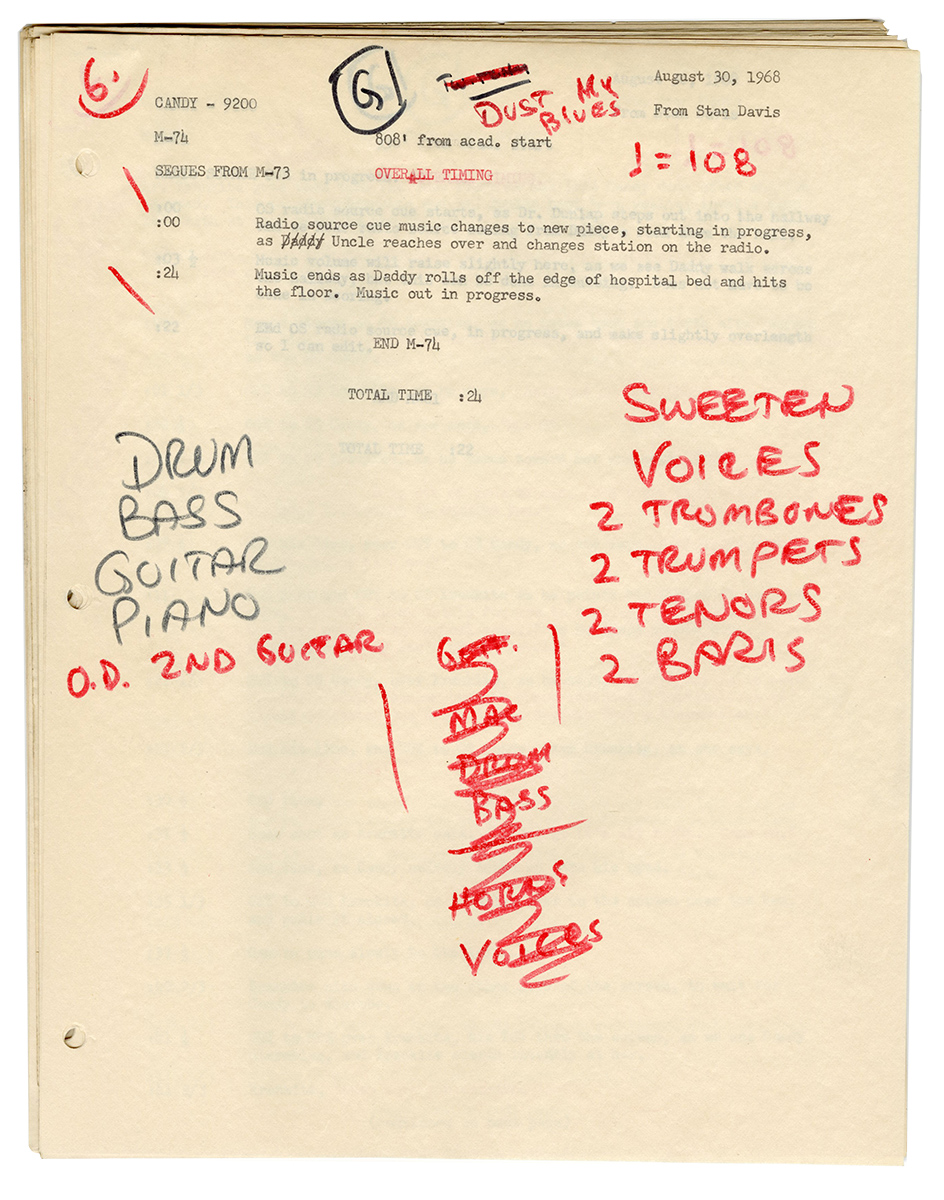 6.
G
August 30, 1968
CANDY - 9200
DUST MY
BLUES
From Stan Davis
M-74
808' from acad. start
♩ = 108
SEGUES FROM M-73
OVERALL TIMING
:00 Radio source cue music changes to new piece, starting in progress,
as Daddy Uncle reaches over and changes station on the radio.
:24 Music ends as Daddy rolls off the edge of hospital bed and hits
the floor. Music out in progress.
:22 End OS radio source cue, in progress, and make slightly overlength
so I can edit.
END M-74
TOTAL TIME :24
TOTAL TIME :22
DRUM
BASS
GUITAR
PIANO
O.D. 2ND GUITAR
SWEETEN
VOICES
2 TROMBONES
2 TRUMPETS
2 TENORS
2 BARIS
MAC
DRUM
BASS
HORNS
VOICES